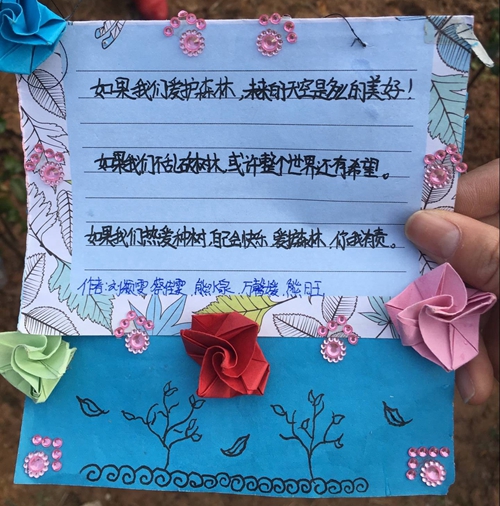 如果我们爱护森林，未来的天空是多么的美好！
如果我们不乱砍树林，或许整个世界还有希望。
如果我们热爱种树，自己会快乐 爱护森林，你我有责。
作者：雯 蔡佳雯 熊 万馨媛 熊